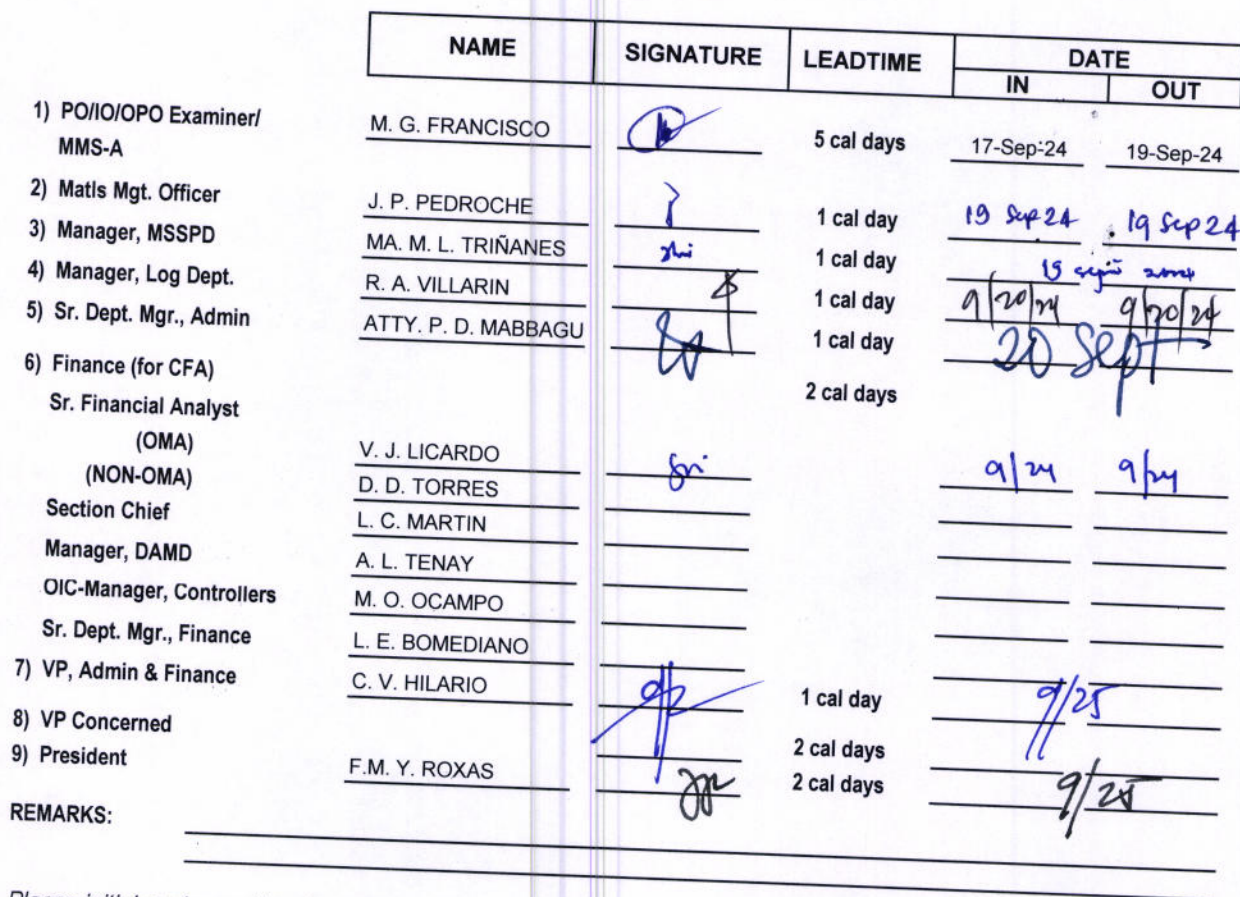 NAME SIGNATURE LEADTIME DATE
IN OUT
1) PO/IO/OPO Examiner/ M. G. FRANCISCO 5 cal days 17-Sep-24 19-Sep-24
MMS-A
2) Matls Mgt. Officer J. P. PEDROCHE 1 cal day 19 Sep 24 19 Sep 24
3) Manager, MSSPD MA. M. L. TRIÑANES 1 cal day
4) Manager, Log Dept. R. A. VILLARIN 1 cal day 9/20/24 9/20/24
5) Sr. Dept. Mgr., Admin ATTY. P. D. MABBAGU 1 cal day 20 Sept
6) Finance (for CFA) 2 cal days
Sr. Financial Analyst
(OMA) V. J. LICARDO 9/24 9/24
(NON-OMA) D. D. TORRES
Section Chief L. C. MARTIN
Manager, DAMD A. L. TENAY
OIC-Manager, Controllers M. O. OCAMPO
Sr. Dept. Mgr., Finance L. E. BOMEDIANO
7) VP, Admin & Finance C. V. HILARIO 1 cal day 9/25
8) VP Concerned 2 cal days
9) President F.M. Y. ROXAS 2 cal days 9/25
REMARKS: